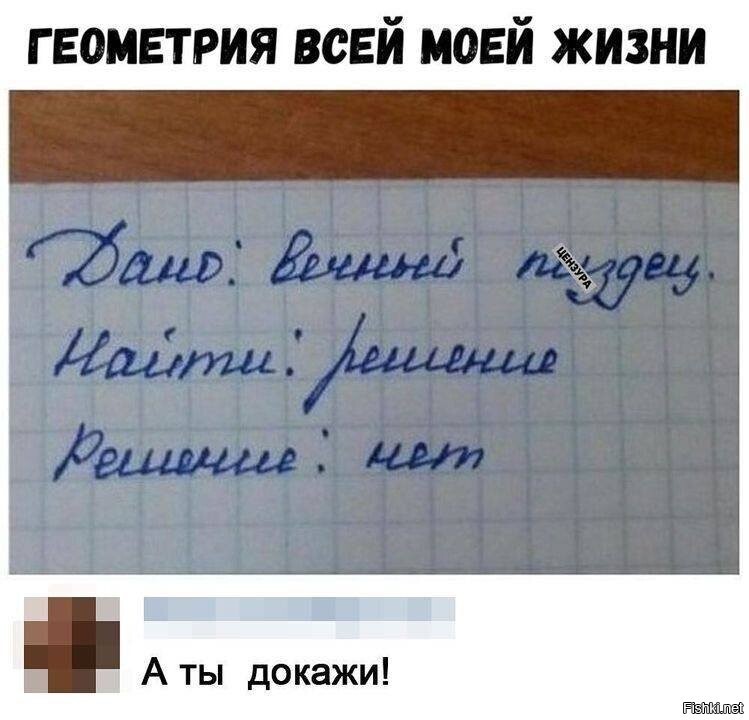 ГЕОМЕТРИЯ ВСЕЙ МОЕЙ ЖИЗНИ
Дано: вечный пиздец.
ЦЕНЗУРА
Найти: решение
Решение: нет
А ты докажи!
Fishki.net